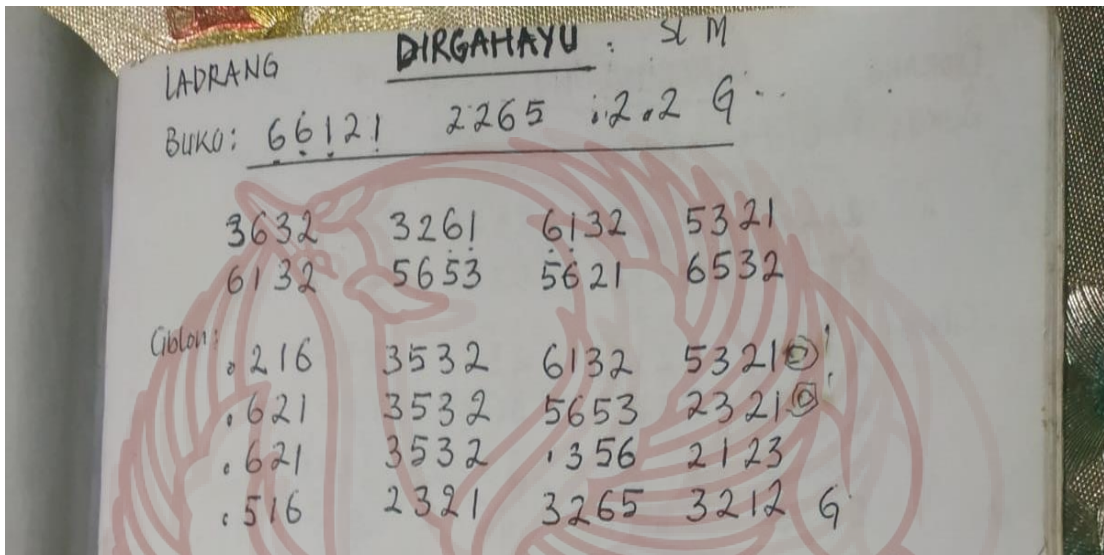 LADRANG DIRGAHAYU : SL M
BUKO: 66121 2265 .2.2 G
3632 3261 6132 5321
6132 5653 5621 6532
Ciblon:
.216 3532 6132 5321
.621 3532 5653 2321
.621 3532 .356 2123
.516 2321 3265 3212 G